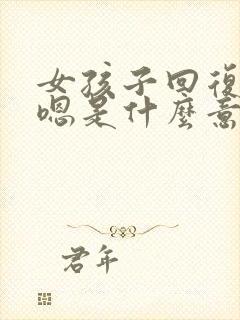 女孩子回復
嗯是什麼意
君年